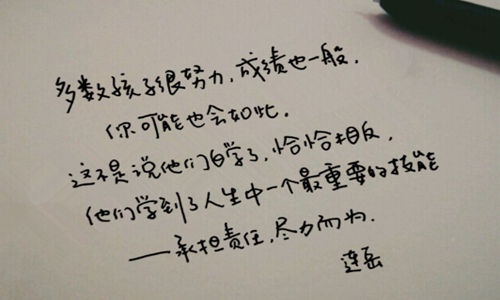 多数孩子很努力，成绩也一般，
你可能也会如此。
这不是说他们白学了，恰恰相反，
他们学到了人生中一个最重要的技能
——承担责任，尽力而为。
连岳